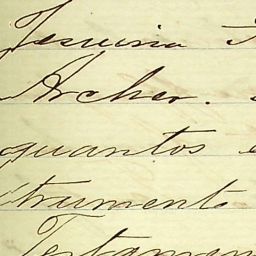 Jesuina
Archer.
quantos
trumento
Testamen